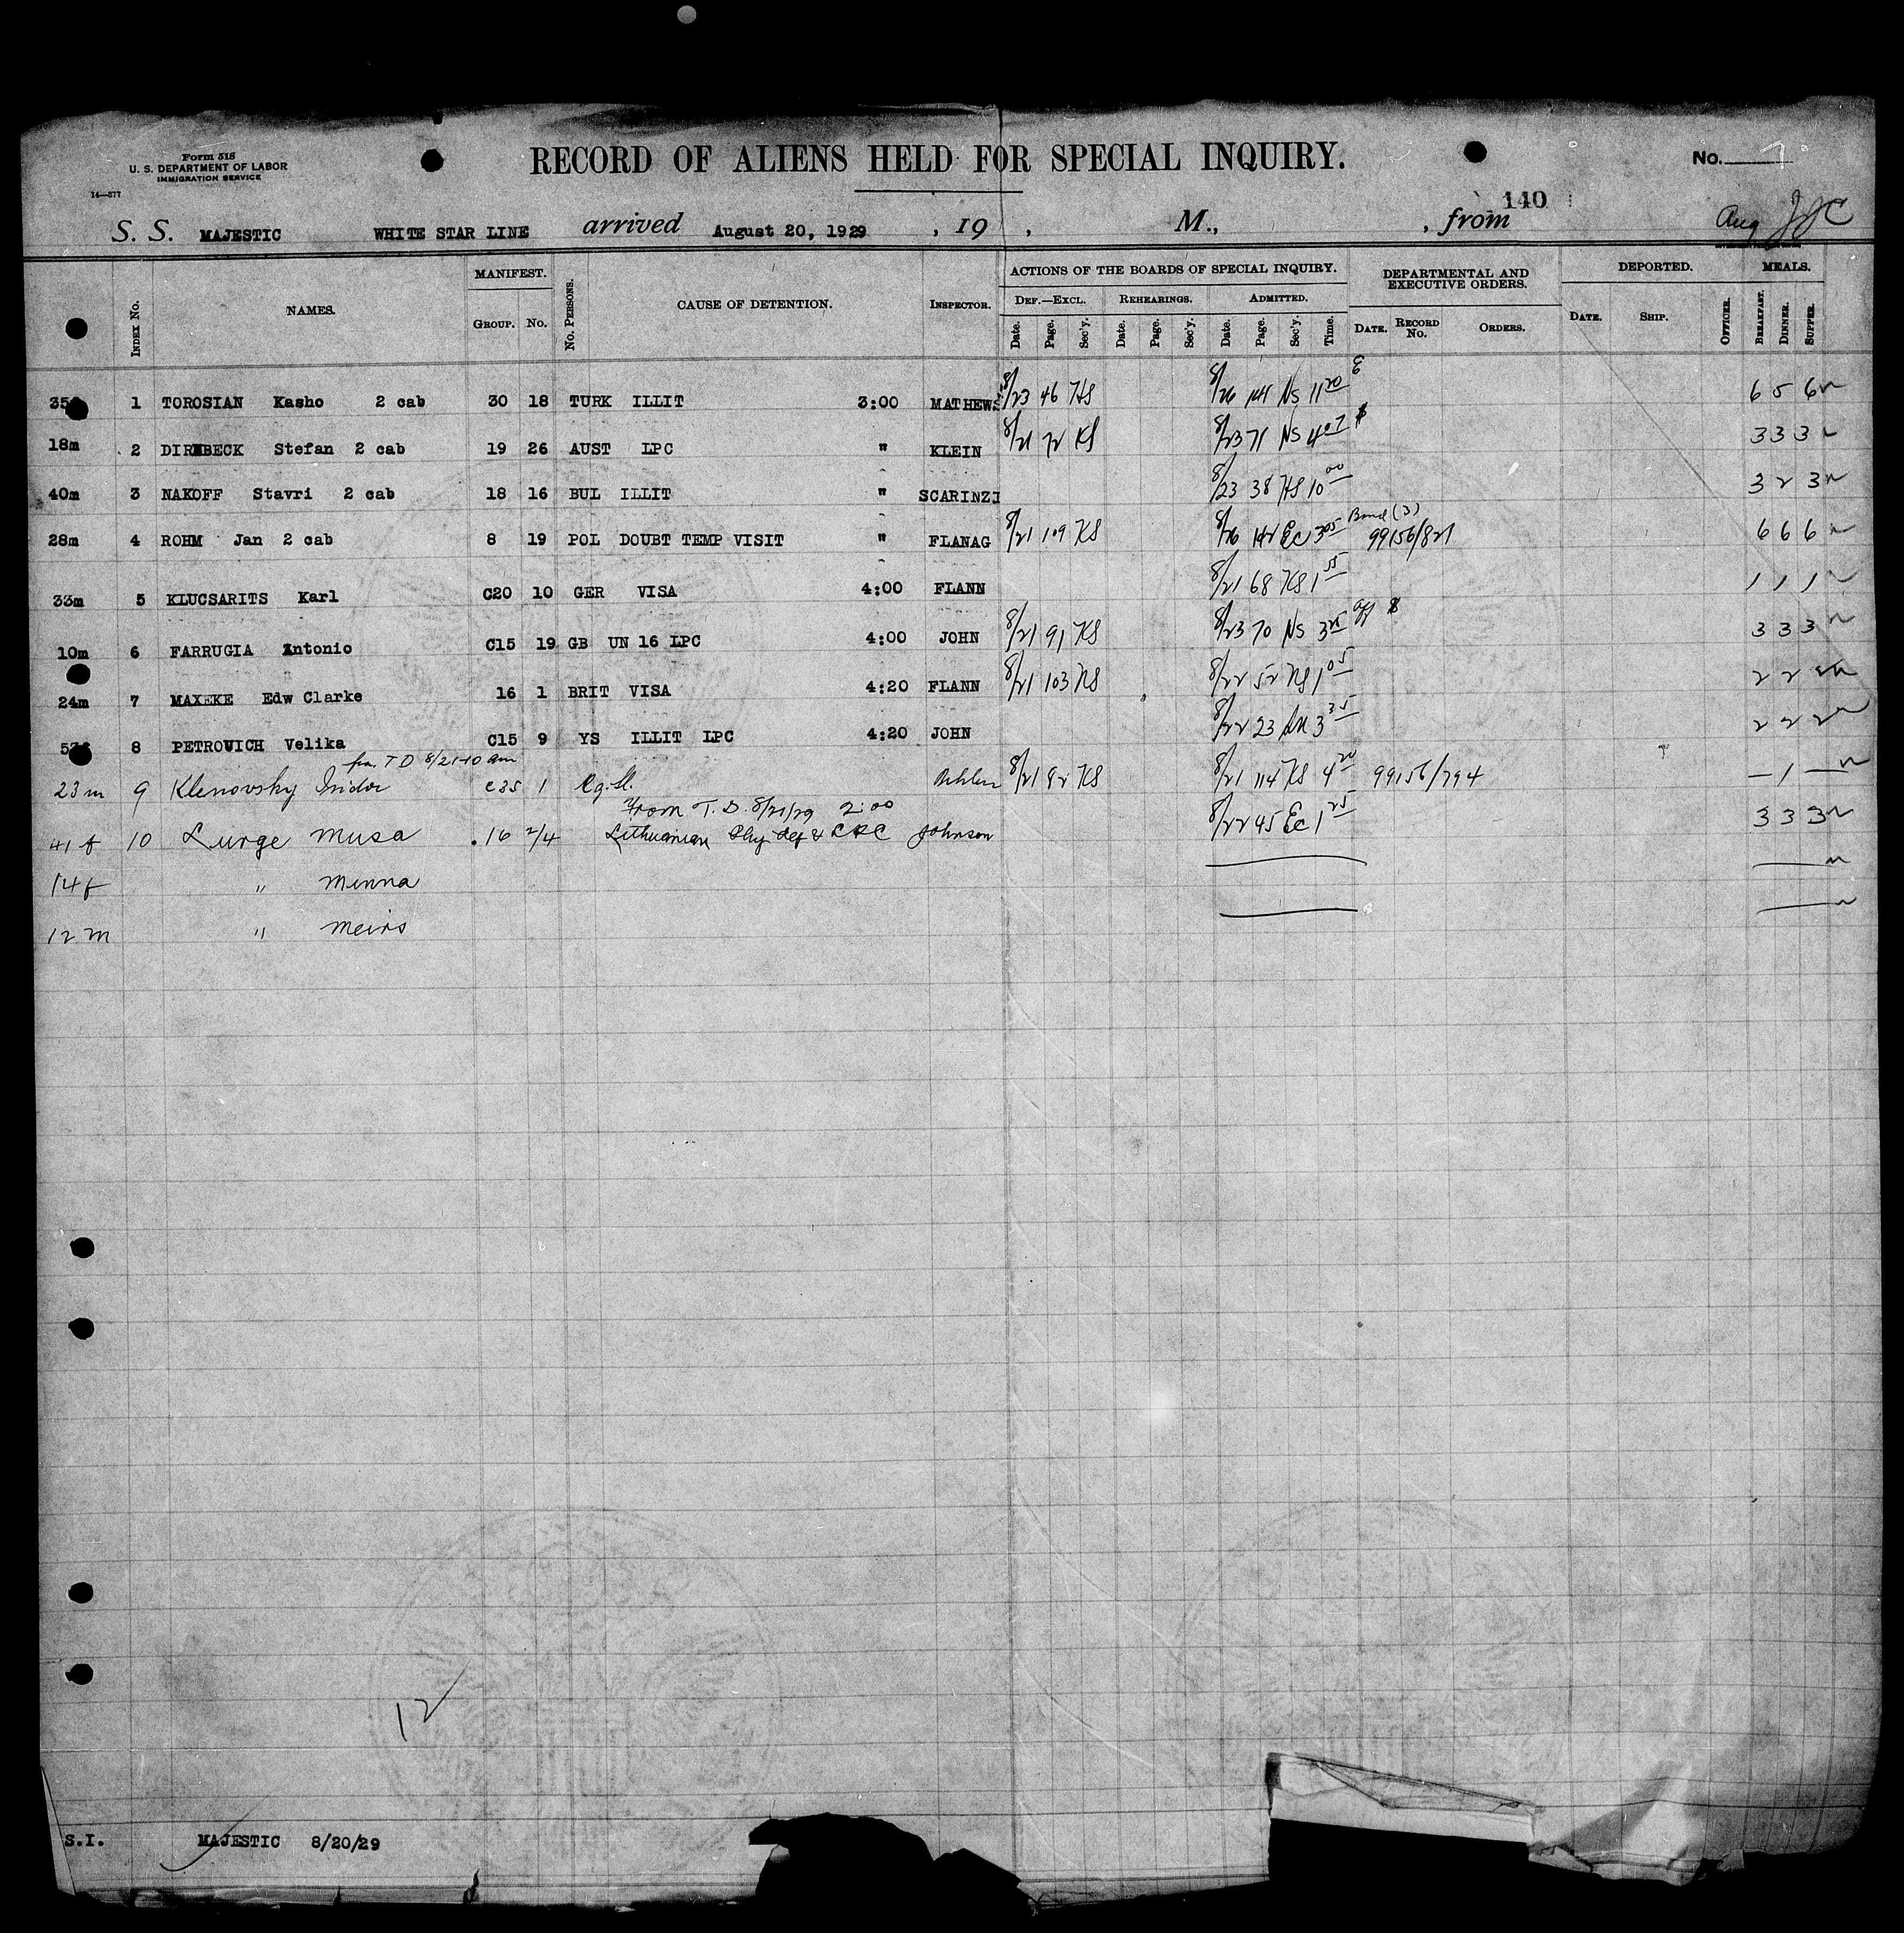 Form 518
U. S. DEPARTMENT OF LABOR
IMMIGRATION SERVICE
14—877
RECORD OF ALIENS HELD FOR SPECIAL INQUIRY.
No. 7
140
S. S. MAJESTIC WHITE STAR LINE arrived August 20, 1929 , 19 , M., , from Aug
INDEX No. NAMES. MANIFEST. GROUP. No. No. PERSONS. CAUSE OF DETENTION. INSPECTOR. ACTIONS OF THE BOARDS OF SPECIAL INQUIRY. DEF.—EXCL. Date. Page. Sec'y. REHEARINGS. Date. Page. Sec'y. ADMITTED. Date. Page. Sec'y. Time. DEPARTMENTAL AND EXECUTIVE ORDERS. DATE. RECORD No. ORDERS. DEPORTED. DATE. SHIP. OFFICER. MEALS. BREAKFAST. DINNER. SUPPER.
1 TOROSIAN Kasho 2 cab 30 18 TURK ILLIT 3:00 MATHEWS 8/23 46 HS 8/26 144 NS 11 20 6 5 6
18m 2 DIRNBECK Stefan 2 cab 19 26 AUST LPC " KLEIN 8/21 72 KS 8/23 71 NS 4 07 3 3 3
40m 3 NAKOFF Stavri 2 cab 18 16 BUL ILLIT " SCARINZI 8/23 38 HS 10 00 3 2 3
28m 4 ROHM Jan 2 cab 8 19 POL DOUBT TEMP VISIT " FLANAG 8/21 109 KS 8/26 142 Ec 3 05 Bond (3) 99156/821 6 6 6
33m 5 KLUCSARITS Karl C20 10 GER VISA 4:00 FLANN 8/21 68 KS 1 55 1 1 1
10m 6 FARRUGIA Antonio C15 19 GB UN 16 LPC 4:00 JOHN 8/21 91 KS 8/23 70 NS 3 3 3 3
24m 7 MAXEKE Edw Clarke 16 1 BRIT VISA 4:20 FLANN 8/21 103 KS 8/22 52 NS 1 05 2 2 2
8 PETROVICH Velika C15 9 YS ILLIT LPC 4:20 JOHN 8/22 23 3 35 2 2 2
fr. T D 8/21-10 am
23 m 9 Klenovsky Isidor C35 1 8/21 82 KS 8/21 114 KS 4 20 99156/794 — 1 —
from T. D. 8/21/29 2:00
41 f 10 Lurge Musa 16 2/4 Lithuanian Phy def & LPC Johnson 8/22 45 Ec 1 25 3 3 3
14 f " Minna
12 m " Meirs
12
S.I. MAJESTIC 8/20/29